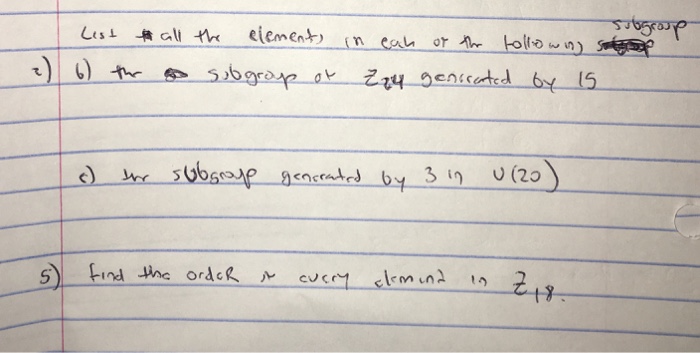 List all the elements in each of the following subgroup
2) b) the subgroup of Z24 generated by 15
c) the subgroup generated by 3 in U(20)
5) find the order of every element in Z18.